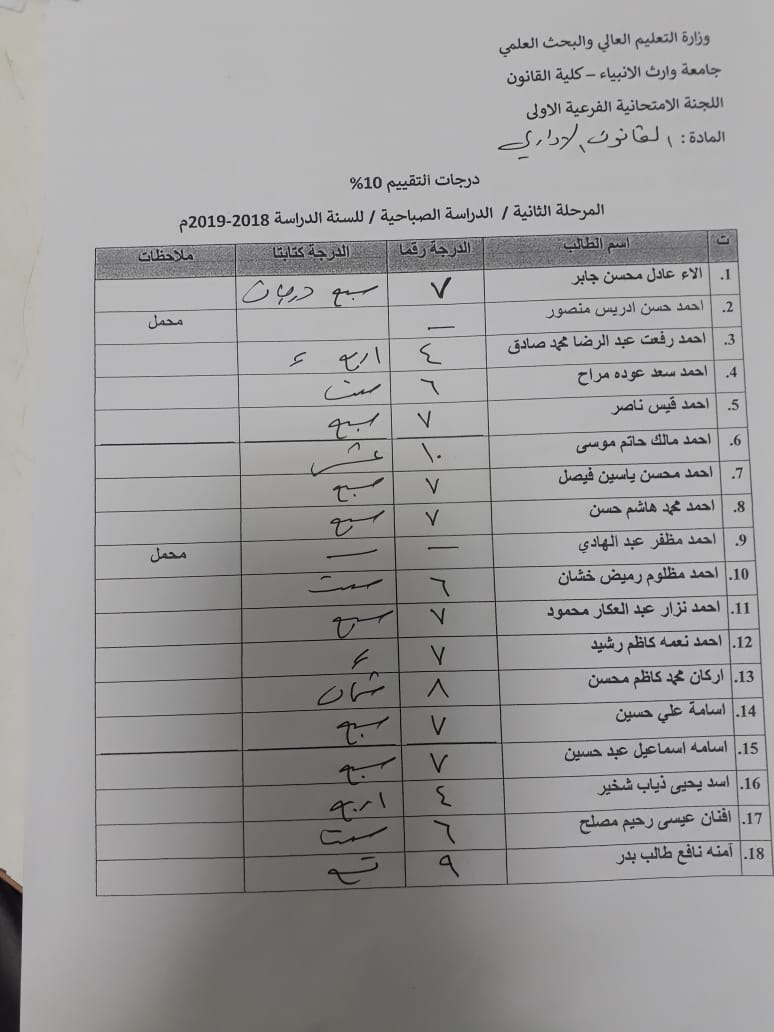 وزارة التعليم العالي والبحث العلمي
جامعة وارث الانبياء – كلية القانون
اللجنة الامتحانية الفرعية الاولى
المادة : القانون الاداري
درجات التقييم 10%
المرحلة الثانية / الدراسة الصباحية / للسنة الدراسة 2018-2019م
ت اسم الطالب الدرجة رقما الدرجة كتابتا ملاحظات
1. الاء عادل محسن جابر ٧ سبع درجات
2. احمد حسن ادريس منصور — محمل
3. احمد رفعت عبد الرضا محمد صادق ٤ اربع ء
4. احمد سعد عوده مراح ٦ ست
5. احمد قيس ناصر ٧ سبع
6. احمد مالك حاتم موسى ١٠ عشر
7. احمد محسن ياسين فيصل ٧ سبع
8. احمد محمد هاشم حسن ٧ سبع
9. احمد مظفر عبد الهادي — — محمل
10. احمد مظلوم رميض خشان ٦ ست
11. احمد نزار عبد العكار محمود ٧ سبع
12. احمد نعمه كاظم رشيد ٧ ء
13. اركان محمد كاظم محسن ٨ ثمان
14. اسامة علي حسين ٧ سبع
15. اسامه اسماعيل عبد حسين ٧ سبع
16. اسد يحيى ذياب شخير ٤ اربع
17. افنان عيسى رحيم مصلح ٦ ست
18. آمنه نافع طالب بدر ٩ تسع